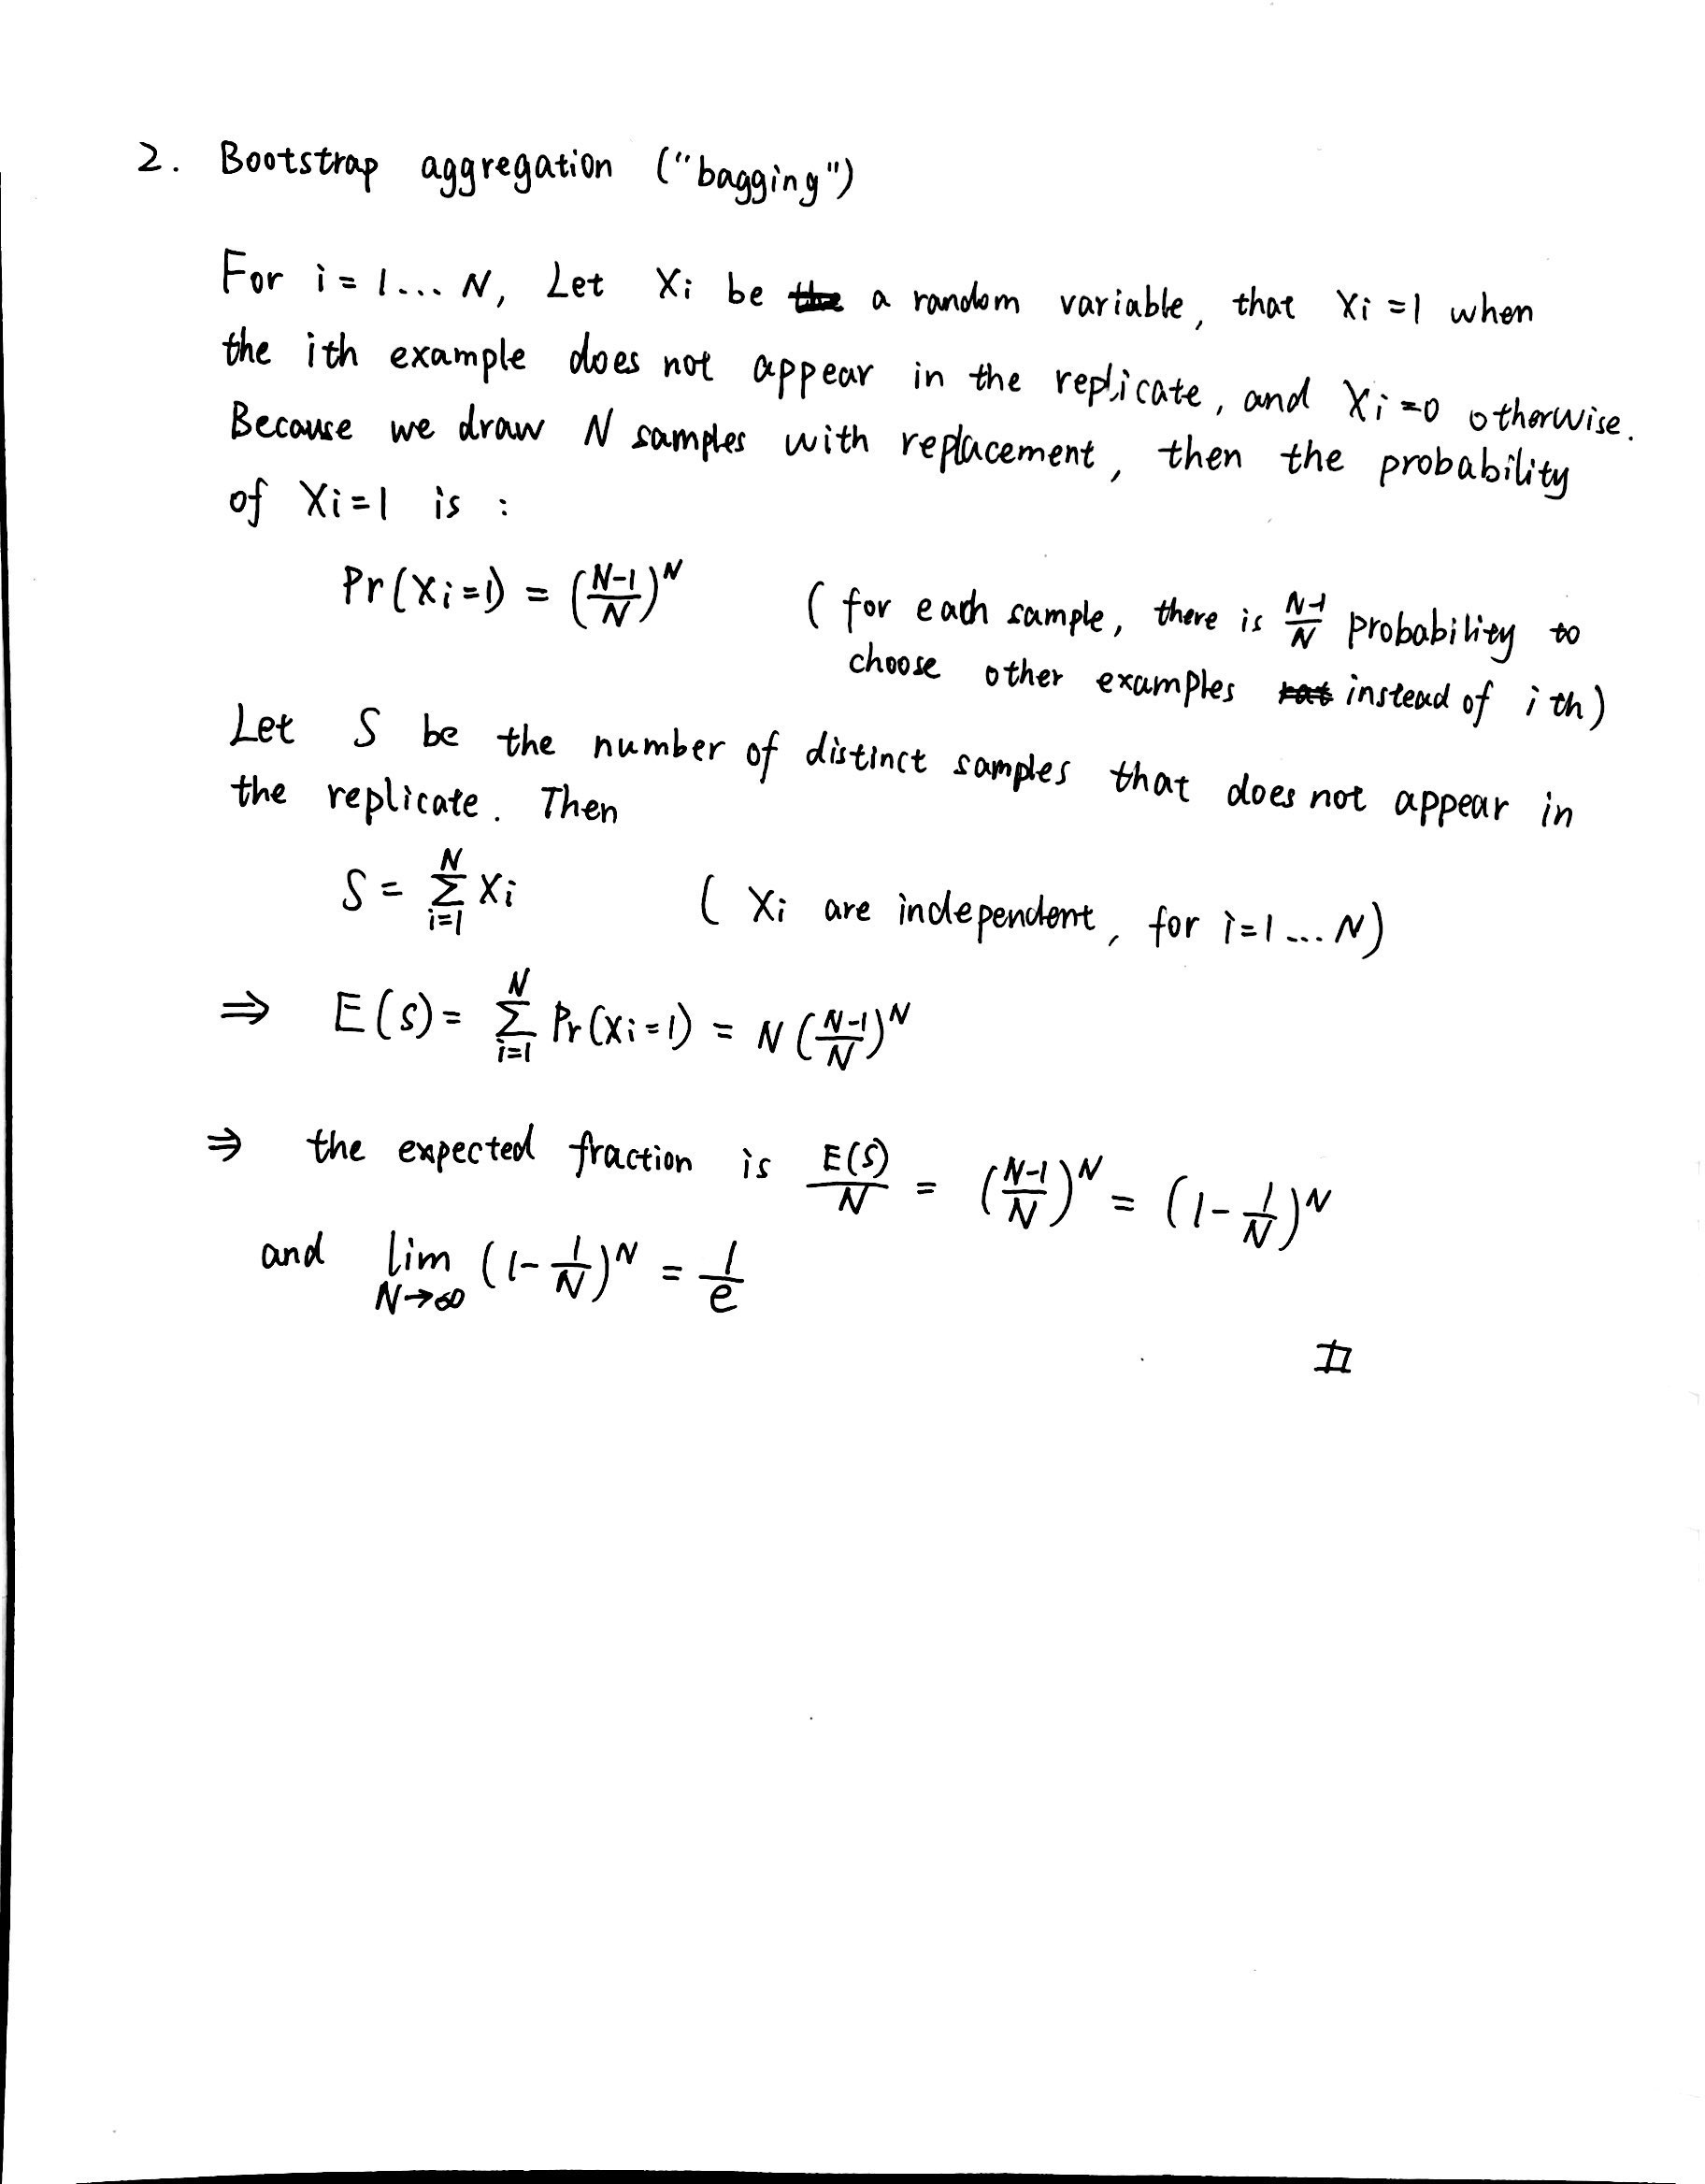 2. Bootstrap aggregation ("bagging")
For i = 1... N, Let Xi be a random variable, that Xi = 1 when
the ith example does not appear in the replicate, and Xi = 0 otherwise.
Because we draw N samples with replacement, then the probability
of Xi = 1 is :
Pr(Xi=1) = (N-1/N)^N ( for each sample, there is N-1/N probability to
choose other examples instead of ith)
Let S be the number of distinct samples that does not appear in
the replicate. Then
S = Σ_{i=1}^{N} Xi ( Xi are independent, for i=1 ... N)
⇒ E(S) = Σ_{i=1}^{N} Pr(Xi=1) = N (N-1/N)^N
⇒ the expected fraction is E(S)/N = (N-1/N)^N = (1-1/N)^N
and lim_{N→∞} (1-1/N)^N = 1/e
#